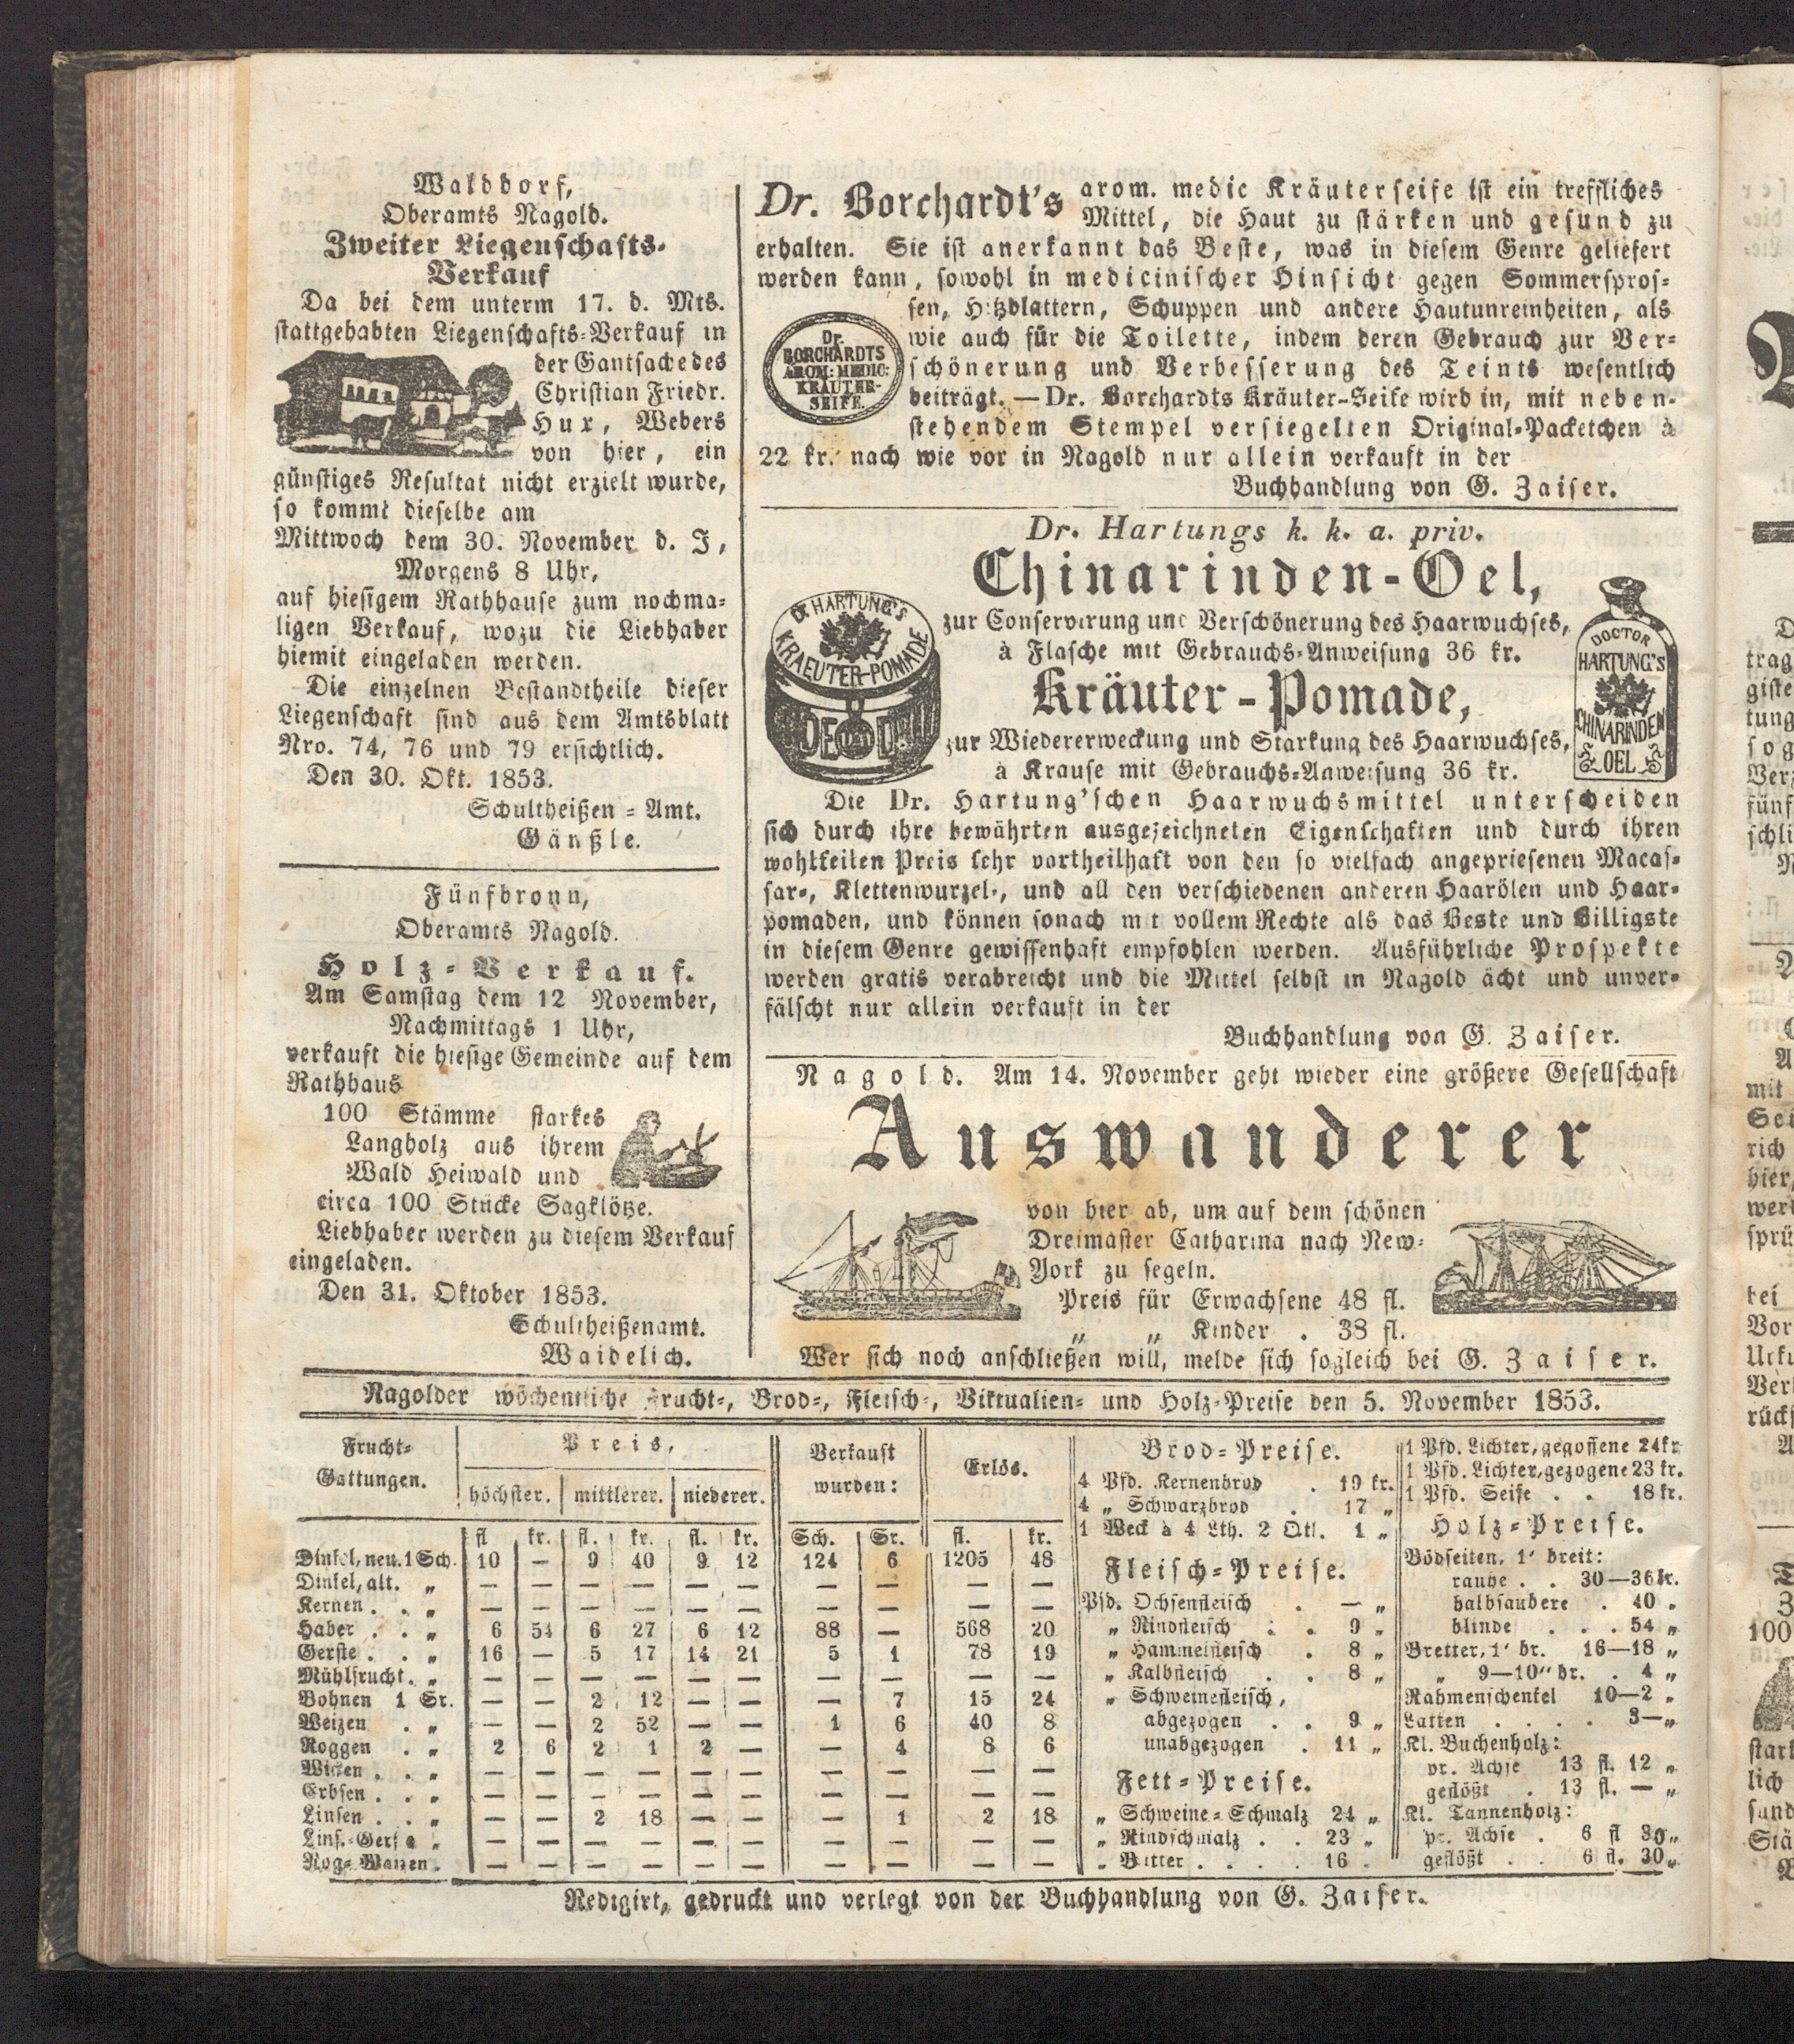 Walddorf,
Oberamts Nagold.
Zweiter Liegenschafts-
Verkauf
Da bei dem unterm 17. d. Mts.
stattgehabten Liegenschafts-Verkauf in
der Gantsache des
Christian Friedr.
Hux, Webers
von hier, ein
günstiges Resultat nicht erzielt wurde,
so kommt dieselbe am
Mittwoch dem 30. November d. J,
Morgens 8 Uhr,
auf hiesigem Rathhause zum nochma-
ligen Verkauf, wozu die Liebhaber
hiemit eingeladen werden.
Die einzelnen Bestandtheile dieser
Liegenschaft sind aus dem Amtsblatt
Nro. 74, 76 und 79 ersichtlich.
Den 30. Okt. 1853.
Schultheißen-Amt.
Gänßle.
Fünfbronn,
Oberamts Nagold.
Holz-Verkauf.
Am Samstag dem 12 November,
Nachmittags 1 Uhr,
verkauft die hiesige Gemeinde auf dem
Rathhaus
100 Stämme starkes
Langholz aus ihrem
Wald Heiwald und
circa 100 Stücke Sagklötze.
Liebhaber werden zu diesem Verkauf
eingeladen.
Den 31. Oktober 1853.
Schultheißenamt.
Waidelich.
Dr. Borchardt's arom. medic Kräuterseife ist ein treffliches
Mittel, die Haut zu stärken und gesund zu
erhalten. Sie ist anerkannt das Beste, was in diesem Genre geliefert
werden kann, sowohl in medicinischer Hinsicht gegen Sommerspros-
sen, Hitzblattern, Schuppen und andere Hautunreinheiten, als
wie auch für die Toilette, indem deren Gebrauch zur Ver-
schönerung und Verbesserung des Teints wesentlich
beiträgt. — Dr. Borchardts Kräuter-Seife wird in, mit neben-
stehendem Stempel versiegelten Original-Packetchen à
22 kr. nach wie vor in Nagold nur allein verkauft in der
Buchhandlung von G. Zaiser.
Dr.
BORCHARDTS
AROM: MEDIC:
KRÄUTER-
SEIFE.
Dr. Hartungs k. k. a. priv.
Chinarinden-Oel,
zur Conservirung und Verschönerung des Haarwuchses,
à Flasche mit Gebrauchs-Anweisung 36 kr.
Kräuter-Pomade,
zur Wiedererweckung und Starkung des Haarwuchses,
à Krause mit Gebrauchs-Anweisung 36 kr.
Dr HARTUNG'S
KRAEUTER-POMADE
DOCTOR
HARTUNG'S
CHINARINDEN
OEL
Die Dr. Hartung'schen Haarwuchsmittel unterscheiden
sich durch ihre bewährten ausgezeichneten Eigenschaften und durch ihren
wohlfeilen Preis sehr vortheilhaft von den so vielfach angepriesenen Macas-
sar-, Klettenwurzel-, und all den verschiedenen anderen Haarölen und Haar-
pomaden, und können sonach mit vollem Rechte als das Beste und Billigste
in diesem Genre gewissenhaft empfohlen werden. Ausführliche Prospekte
werden gratis verabreicht und die Mittel selbst in Nagold ächt und unver-
fälscht nur allein verkauft in der
Buchhandlung von G. Zaiser.
Nagold. Am 14. November geht wieder eine größere Gesellschaft
Auswanderer
von hier ab, um auf dem schönen
Dreimaster Catharina nach New-
York zu segeln.
Preis für Erwachsene 48 fl.
„ „ Kinder . 38 fl.
Wer sich noch anschließen will, melde sich sogleich bei G. Zaiser.
Nagolder wöchentliche Frucht-, Brod-, Fleisch-, Viktualien- und Holz-Preise den 5. November 1853.
Frucht-Gattungen. | Preis, | Verkauft wurden: | Erlös.
höchster. | mittlerer. | niederer.
fl kr. | fl. kr. | fl. kr. | Sch. Sr. | fl. kr.
Dinkel, neu. 1 Sch. 10 — 9 40 9 12 124 6 1205 48
Dinkel, alt. „ — — — — — — — — — —
Kernen . . „ — — — — — — — — — —
Haber . . „ 6 54 6 27 6 12 88 — 568 20
Gerste . . „ 16 — 5 17 14 21 5 1 78 19
Mühlfrucht. „ — — — — — — — — — —
Bohnen 1 Sr. — — 2 12 — — — 7 15 24
Weizen . „ — — 2 52 — — 1 6 40 8
Roggen . „ 2 6 2 1 2 — — 4 8 6
Wicken . . „ — — — — — — — — — —
Erbsen . . „ — — — — — — — — — —
Linsen . . „ — — 2 18 — — — 1 2 18
Lins.-Gerste „ — — — — — — — — — —
Rog.-Waizen . — — — — — — — — — —
Brod-Preise.
4 Pfd. Kernenbrod . 19 kr.
4 „ Schwarzbrod . 17 „
1 Weck à 4 Lth. 2 Qtl. 1 „
Fleisch-Preise.
Pfd. Ochsenfleisch . — „
„ Rindfleisch . . 9 „
„ Hammelfleisch . 8 „
„ Kalbfleisch . . 8 „
„ Schweinefleisch,
abgezogen . . 9 „
unabgezogen . 11 „
Fett-Preise.
„ Schweine-Schmalz 24 „
„ Rindschmalz . . 23 „
„ Butter . . . . 16 .
1 Pfd. Lichter, gegossene 24kr
1 Pfd. Lichter, gezogene 23 kr.
1 Pfd. Seife . . 18 kr.
Holz-Preise.
Bödseiten, 1' breit:
rauhe . . 30—36 kr.
halbsaubere . 40 „
blinde . . . 54 „
Bretter, 1' br. 16—18 „
„ 9—10" br. . 4 „
Rahmenschenkel 10—2 „
Latten . . . . 3—„
Kl. Buchenholz:
pr. Achse 13 fl. 12 „
geflößt . 13 fl. — „
Kl. Tannenholz:
pr. Achse . 6 fl 30 „
geflößt . . 6 fl. 30 „
Redigirt, gedruckt und verlegt von der Buchhandlung von G. Zaiser.